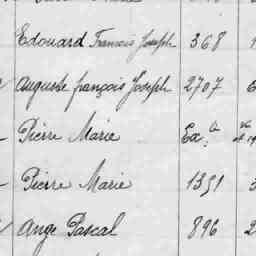 Edouard Francois Joseph 368
Auguste françois Joseph 2707
Pierre Marie Ex. a
Pierre Marie 1351
Ange Pascal 896